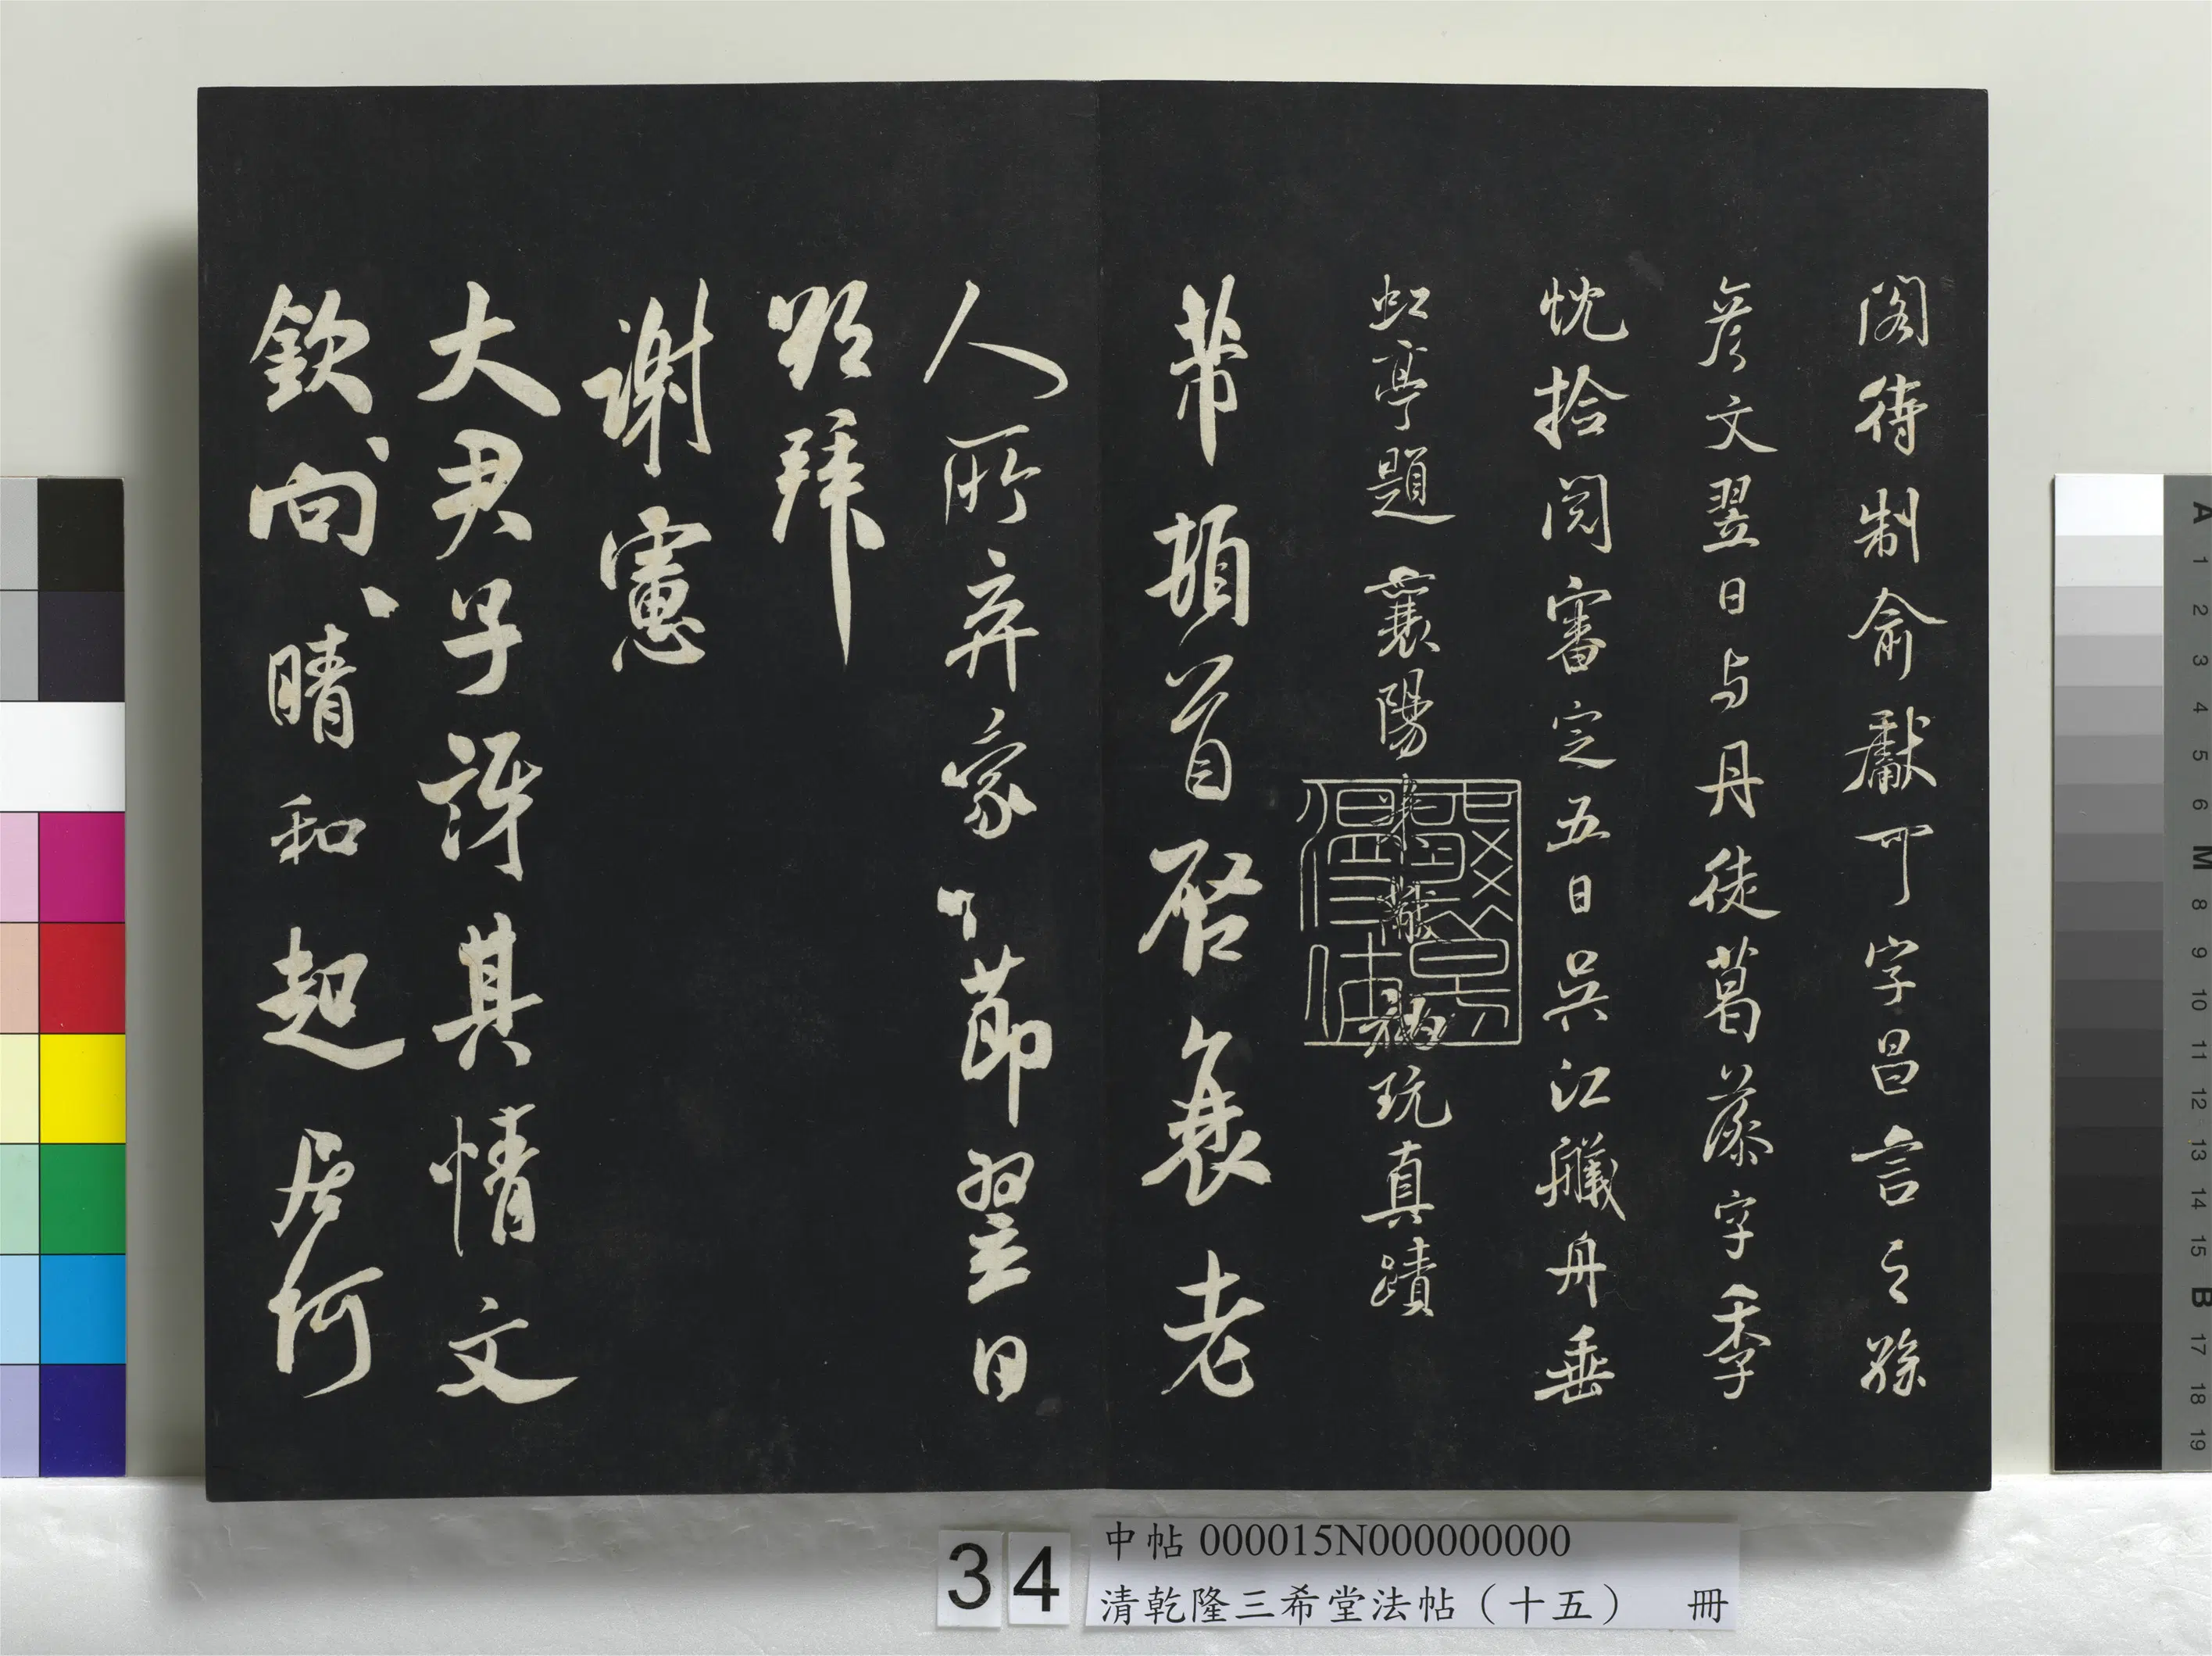 閣待制俞獻可字昌言之孫
彥文翌日与丹徒葛藻字季
忱拾閱審定五日吳江艤舟垂
虹亭題襄陽米黻秘玩真蹟
芾頓首啓衰老
人所弃蒙節翌日
躬拜
謝憲
大尹子訝其情文
欽向、晴和起居何
3 4
中帖 000015N000000000
清乾隆三希堂法帖（十五） 冊
A 1 2 3 4 5 6 M 8 9 10 11 12 13 14 15 B 17 18 19